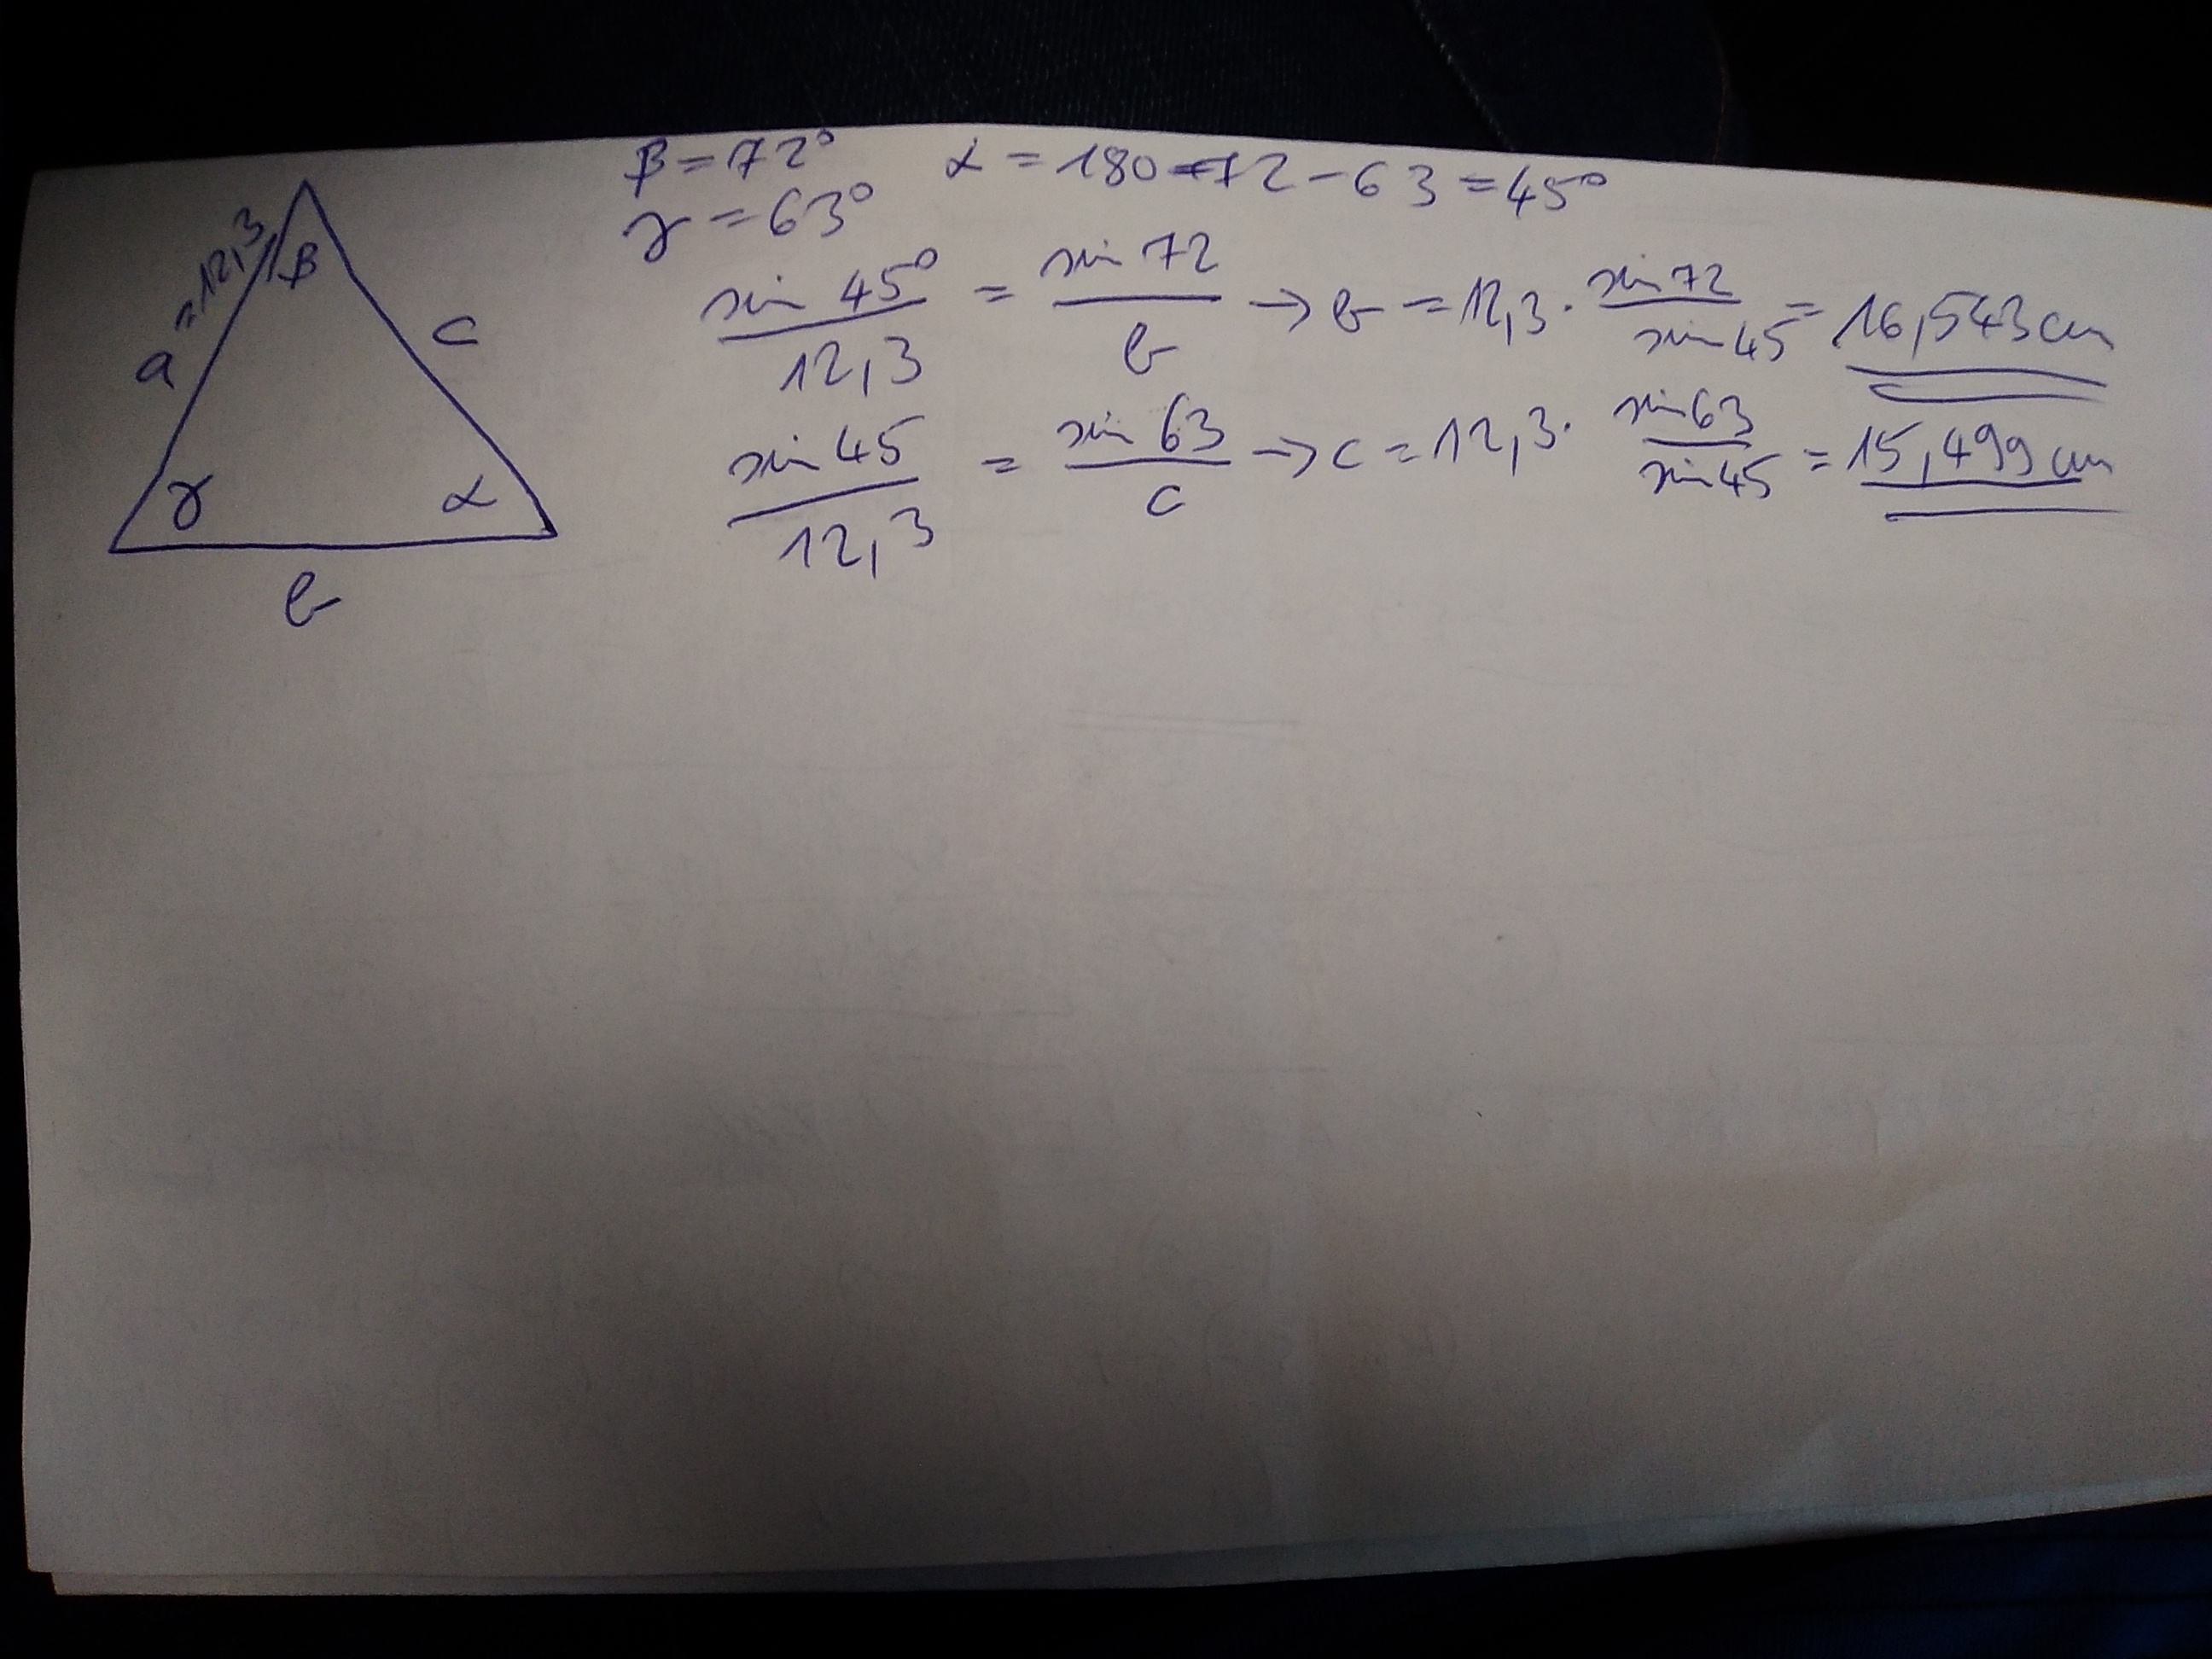 β = 72° α = 180 - 72 - 63 = 45°
γ = 63°
a = 12,3
β
c
γ
α
b
sin 45° / 12,3 = sin 72 / b → b = 12,3 · sin 72 / sin 45 = 16,543 cm
sin 45 / 12,3 = sin 63 / c → c = 12,3 · sin 63 / sin 45 = 15,499 cm